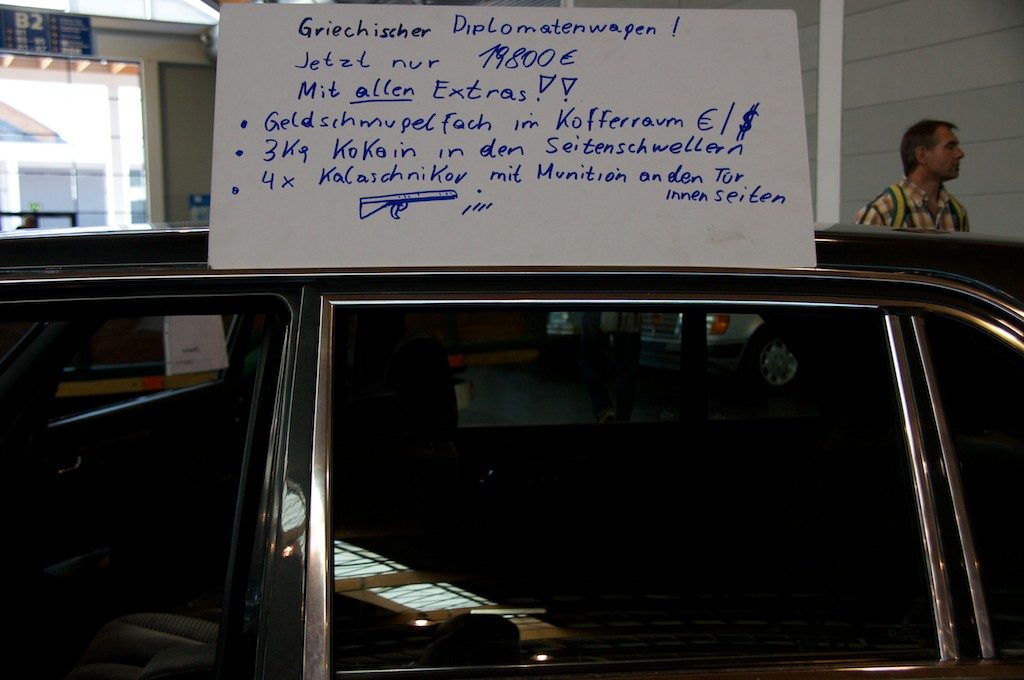 B2
Griechischer Diplomatenwagen !
Jetzt nur 19800 €
Mit allen Extras!!
• Geldschmugelfach im Kofferraum €/$
• 3Kg Kokain in den Seitenschwellern
• 4x Kalaschnikov mit Munition an den Tür
innenseiten